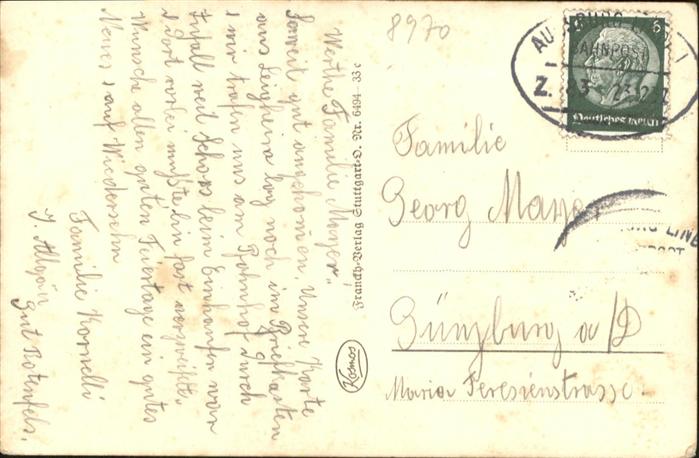 Werthe Familie Mayer!
Soweit gut angekommen, Unsere Karte
aus Leipheim lag noch im Briefkasten
wir trafen uns am Bahnhof durch
Zufall weil Schoos beim Einkaufen war
dort vorbei mußte bin fast verzweifelt.
Wünsche allen guten Feiertage ein gutes
Neues auf Wiedersehn
Familie Kornelli
Gut Rotenfels.
Franckh-Verlag Stuttgart-O. Nr. 6494-33c
Kosmos
8970
BAHNPOST
Z.
6
Deutsches Reich
Familie
Georg Mayer
Günzburg a/D
Maria Teresienstrasse.